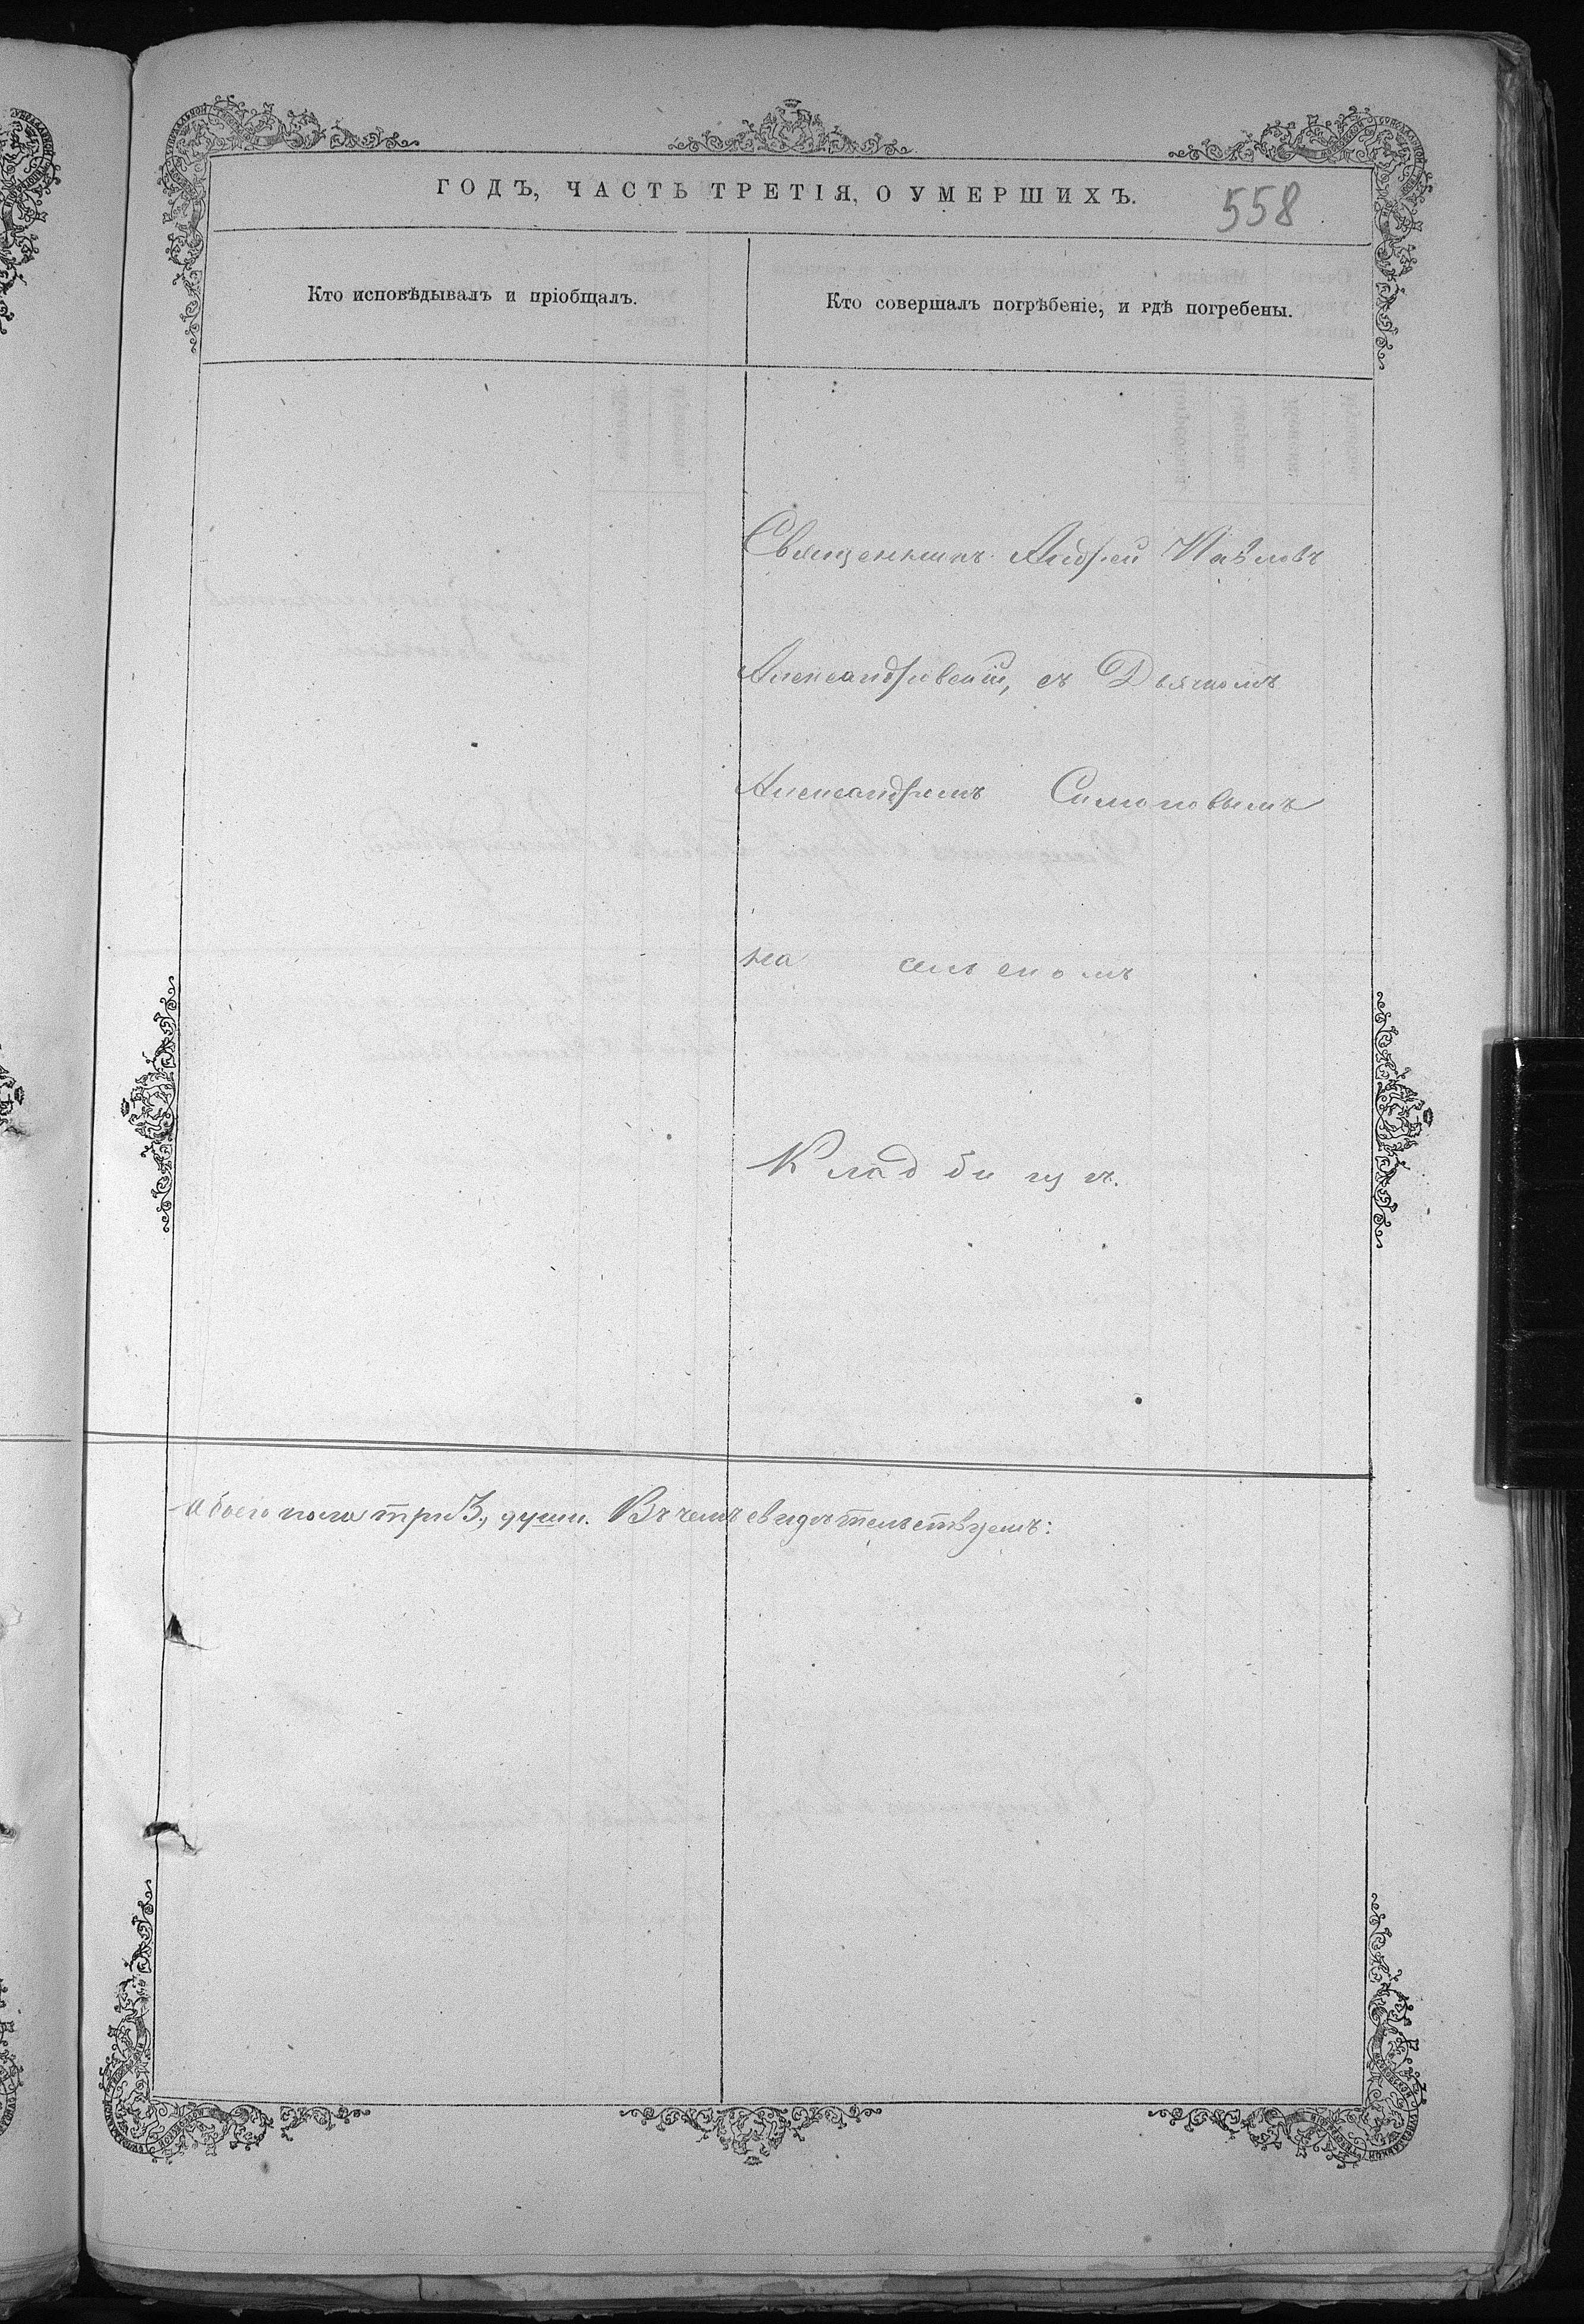 ГОДЪ, ЧАСТЬ ТРЕТІЯ, О УМЕРШИХЪ.
558
Кто исповѣдывалъ и пріобщалъ.
Кто совершалъ погрѣбеніе, и гдѣ погребены.
Священникъ Андрей Павловъ
Александровскій, съ Дьячкомъ
Александромъ Симоновымъ
на сельскомъ
Кладбищѣ.
обоего пола три 3, души. Въ чемъ свидѣтельствуемъ: